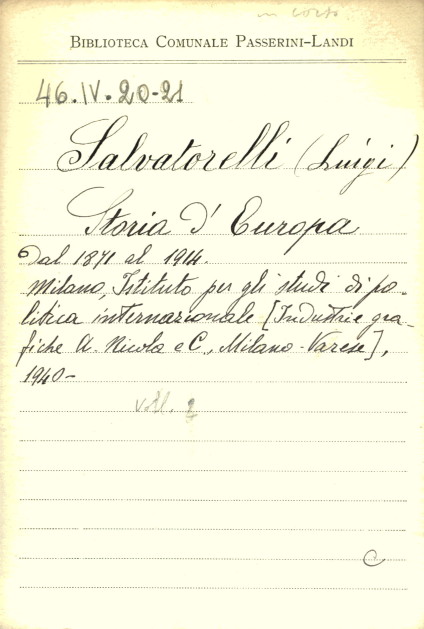 in corso
BIBLIOTECA COMUNALE PASSERINI-LANDI
46.IV.20-21
Salvatorelli (Luigi)
Storia d'Europa
Dal 1871 al 1914.
Milano, Istituto per gli studi di po-
litica internazionale [Industrie gra-
fiche A. Nicola e C., Milano-Varese],
1940-
voll. 2
C